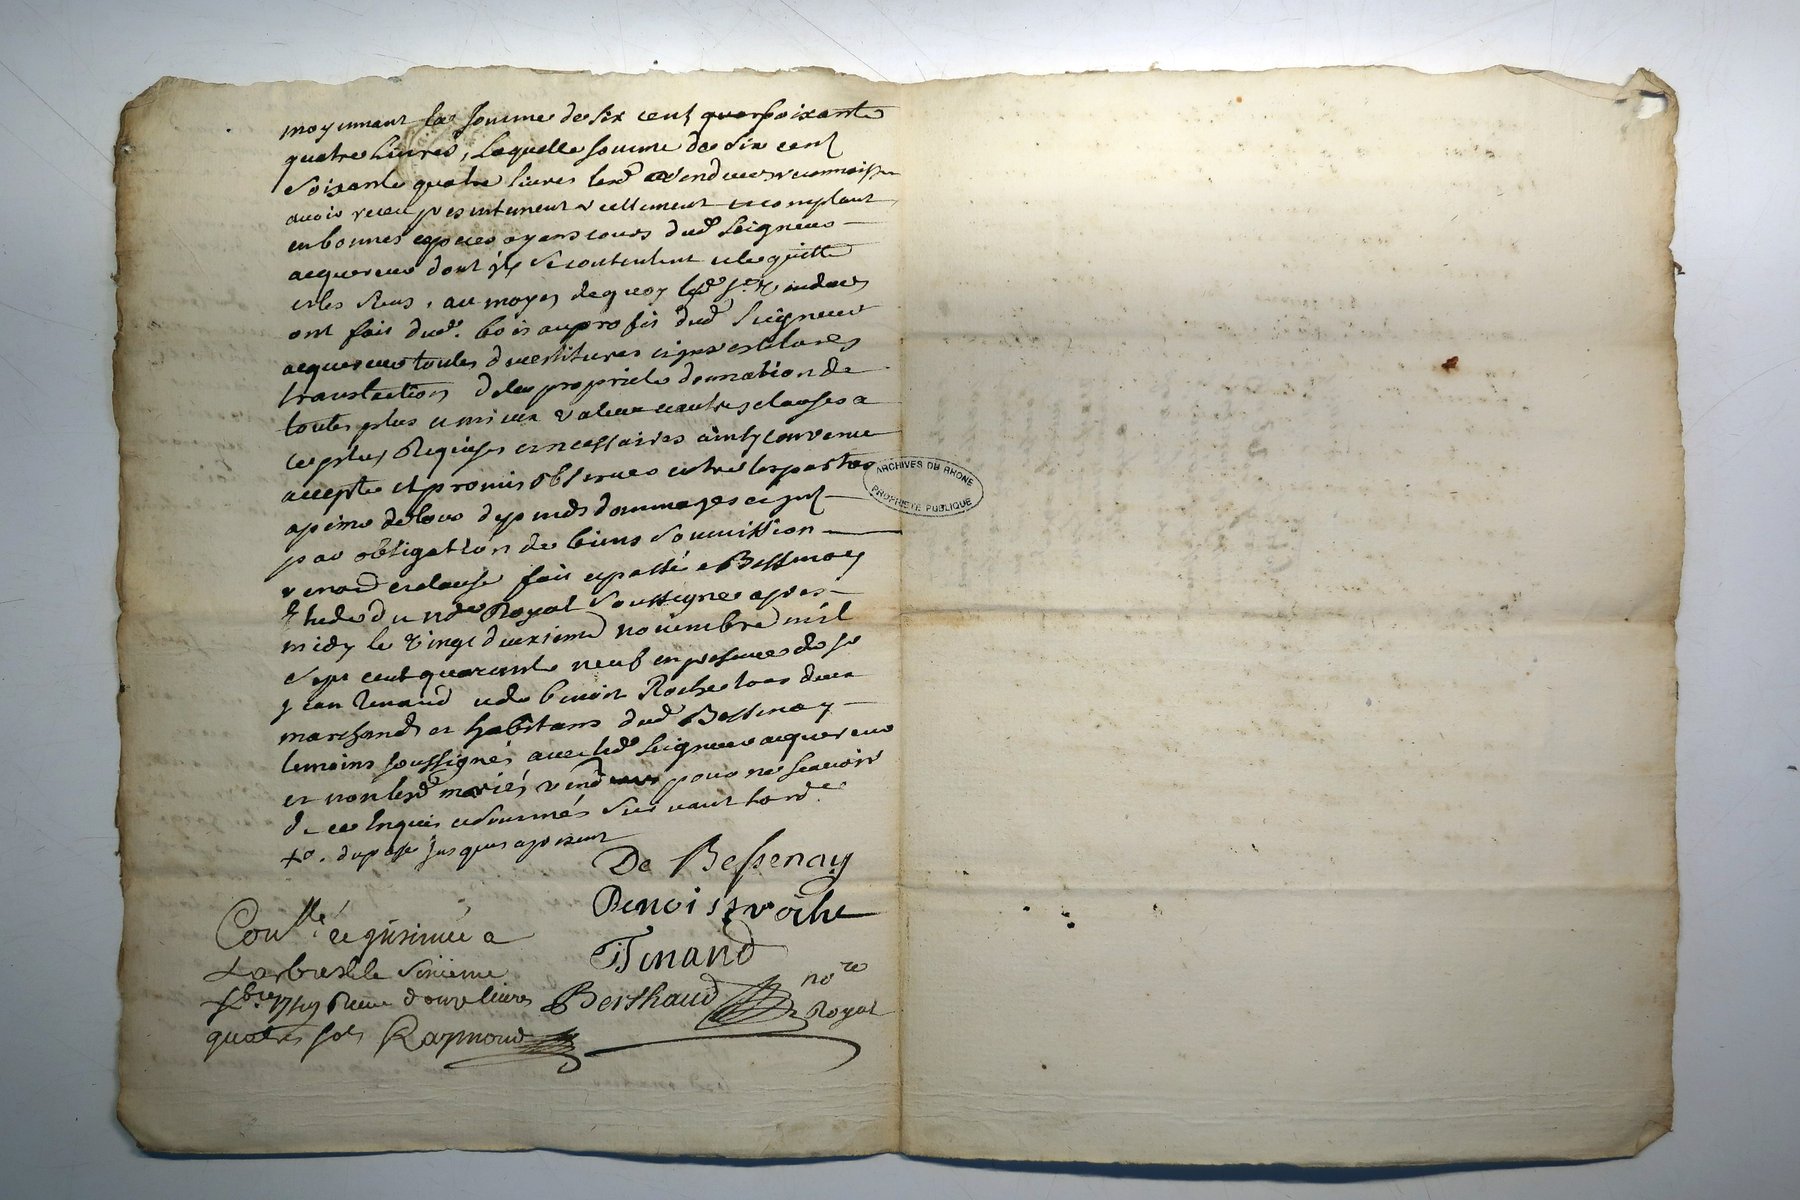 moyennant la somme de six cent quarsoixante
quatre Livres, Laquelle somme de six cent
soixante quatre livres lesd. vendeurs reconnaisse
avoir receu presentement reellement et comptant
en bonnes espces ayans cours dud. Seigneur
acquereur dont ils se contentent et le quitte
et les siens, au moyen de quoy lesd. Srs. Vendeurs
ont fait dud. bois au profit dud. Seigneur
acquereur toutes devestitures
translation de la propriété donnation de
toutes plus et mieux Valeur et autres clauses a
ce plus Requises et necessaires ainsy convenu
accepte et promis observer entre les parties
a peine de tous depends dommages et int
par obligation de biens soumission
renond et clause fait et passé a Bessenay
Etude du nore Royal soussigné apres
midy le Vingt deuxieme novembre mil
sept cent quarante neuf en presence de Sr
Jean Tenand et de benoit Roche tous deux
marchands et habitans dud. Bessenay
temoins soussignés avec led. Seigneur acquereur
et non lesd. mariés vend pour ne scavoir
de ce Enquis et sommés suivant lord.ce
jusques a present
De Bessenay
Benoist roche
J Tenand
Berthaud nore
Royal
Conllé et insinué a
Larbresle le sixieme
xbre 1749 Receu douze livres
quatres sols Raymond
ARCHIVES DU RHONE
PROPRIETE PUBLIQUE